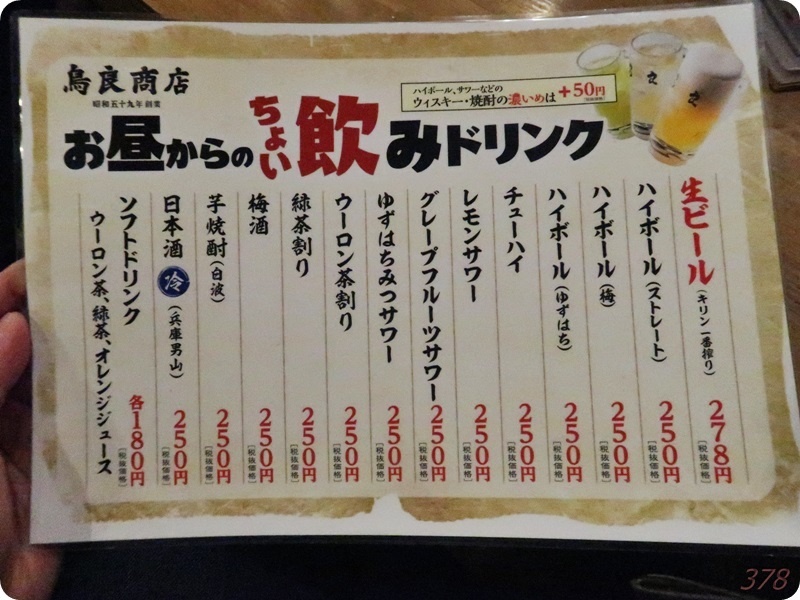 鳥良商店
昭和五十九年創業
ハイボール、サワーなどの
ウィスキー・焼酎の濃いめは+50円
[税抜価格]
お昼からのちょい飲みドリンク
生ビール(キリン一番搾り) 278円[税抜価格]
ハイボール(ストレート) 250円[税抜価格]
ハイボール(梅) 250円[税抜価格]
ハイボール(ゆずはち) 250円[税抜価格]
チューハイ 250円[税抜価格]
レモンサワー 250円[税抜価格]
グレープフルーツサワー 250円[税抜価格]
ゆずはちみつサワー 250円[税抜価格]
ウーロン茶割り 250円[税抜価格]
緑茶割り 250円[税抜価格]
梅酒 250円[税抜価格]
芋焼酎(白波) 250円[税抜価格]
日本酒 冷 (兵庫男山) 250円[税抜価格]
ソフトドリンク 各180円[税抜価格]
ウーロン茶、緑茶、オレンジジュース
378